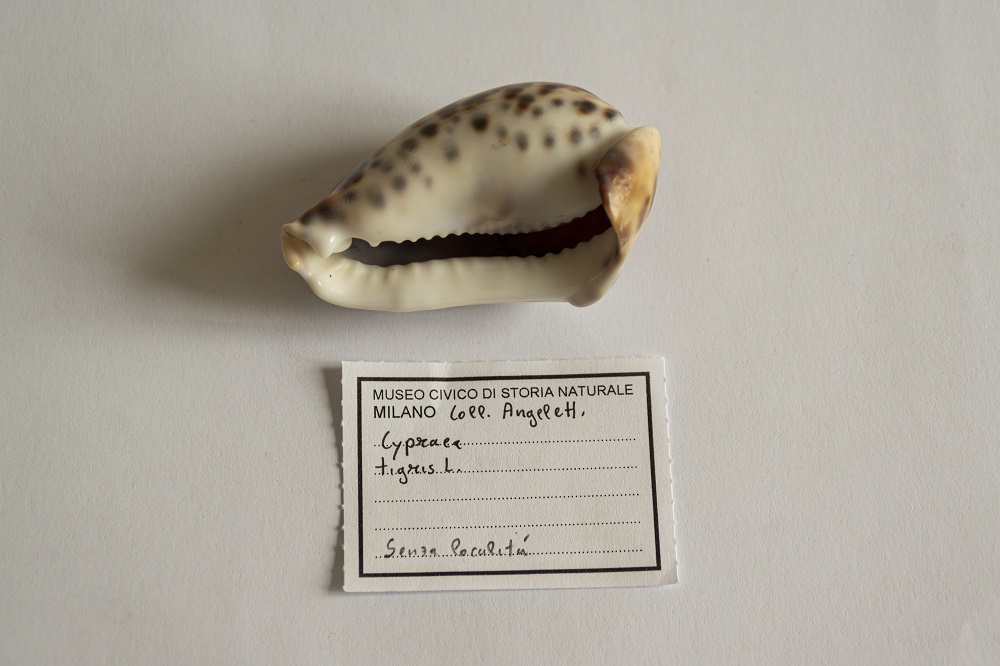 MUSEO CIVICO DI STORIA NATURALE
MILANO Coll. Angelett.
Cypraea
tigris L.
Senza località